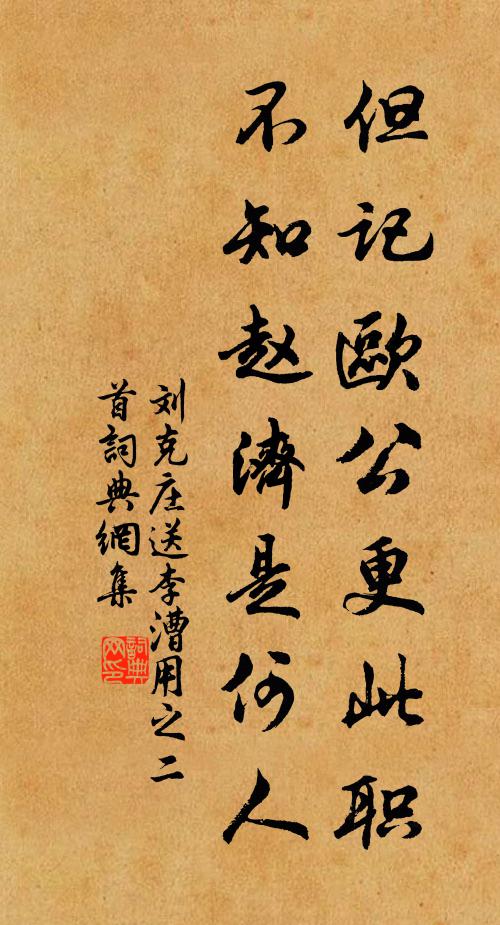 但记歐公更此职
不知赵濟是何人
刘克庄送李漕用之二
首詞典網集
詞典
网印